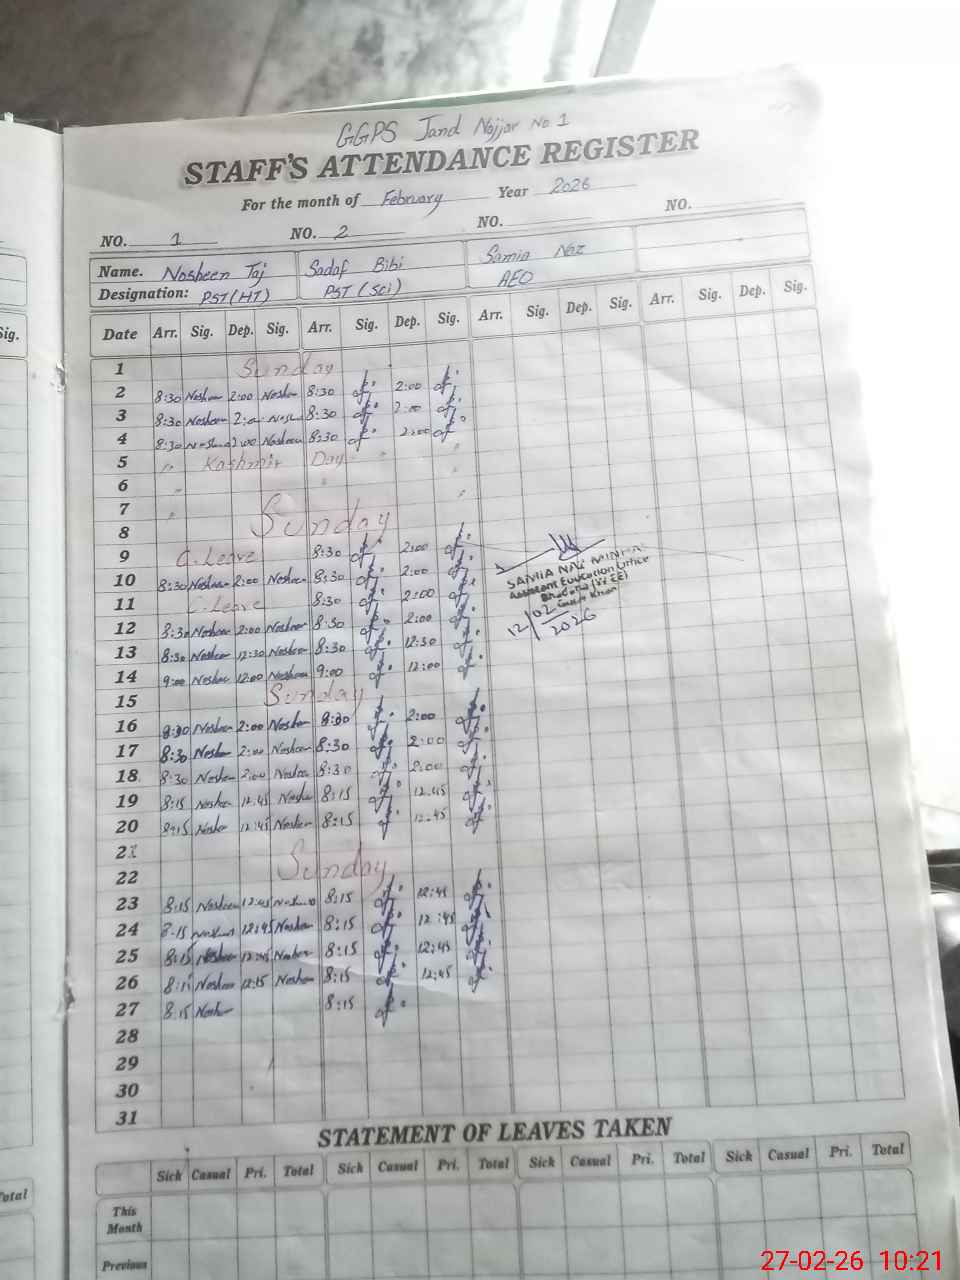 GGPS Jand Najjar No 1
STAFF'S ATTENDANCE REGISTER
For the month of February Year 2026
NO. 1 NO. 2 NO. NO.
Name. Nosheen Taj Sadaf Bibi Samia Naz
Designation: PST (HT) PST (Sci) AEO
Sig.
Date Arr. Sig. Dep. Sig. Arr. Sig. Dep. Sig. Arr. Sig. Dep. Sig. Arr. Sig. Dep. Sig.
1 Sunday
2 8:30 Nosheen 2:00 Nosheen 8:30 2:00
3 8:30 Nosheen 8:30 2:00
4 8:30 2:00 Nosheen 8:30 2:00
5 " Kashmir Day " "
6 " " "
7 " "
8 Sunday
9 C. Leave 8:30 2:00
10 8:30 Nosheen 2:00 Nosheen 8:30 2:00
11 C. Leave 8:30 2:00
12 8:30 Nosheen 2:00 Nosheen 8:30 2:00
13 8:30 Nosheen 12:30 Nosheen 8:30 12:30
14 9:00 Nosheen 12:00 Nosheen 9:00 12:00
SAMIA NAZ
Assistant Education Officer
12/02/2026
15 Sunday
16 8:30 Nosheen 2:00 Nosheen 8:30 2:00
17 8:30 Nosheen 2:00 Nosheen 8:30 2:00
18 8:30 Nosheen 2:00 Nosheen 8:30 2:00
19 8:15 Nosheen 12:45 Nosheen 8:15 12:45
20 8:15 Nosheen 12:45 Nosheen 8:15 12:45
21
22 Sunday
23 8:15 Nosheen 12:45 8:15 12:45
24 8:15 12:45 Nosheen 8:15 12:45
25 8:15 Nosheen 12:45 Nosheen 8:15 12:45
26 Nosheen 12:15 Nosheen 8:15 12:45
27 8:15 Nosheen 8:15
28
29
30
31
STATEMENT OF LEAVES TAKEN
Sick Casual Pri. Total Sick Casual Pri. Total Sick Casual Pri. Total Sick Casual Pri. Total
This
Month
Previous
27-02-26 10:21